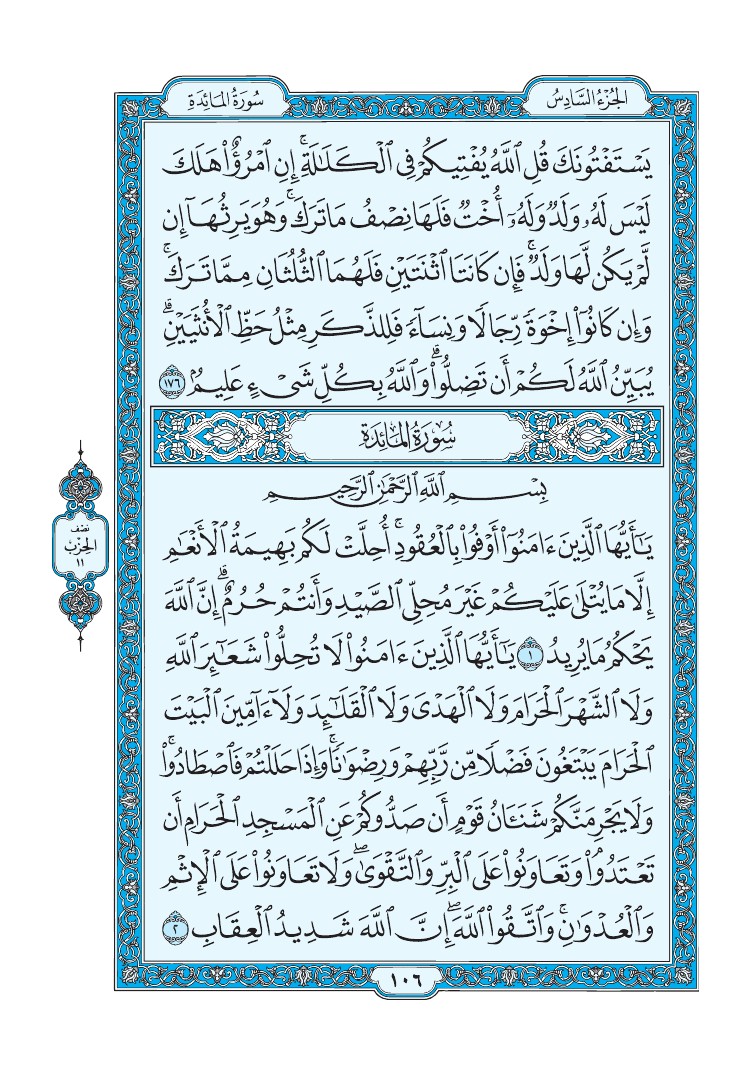 الجُزْءُ السَّادِسُ
سُورَةُ المَائِدَةِ
يَسۡتَفۡتُونَكَ قُلِ ٱللَّهُ يُفۡتِيكُمۡ فِي ٱلۡكَلَٰلَةِۚ إِنِ ٱمۡرُؤٌاْ هَلَكَ
لَيۡسَ لَهُۥ وَلَدٞ وَلَهُۥٓ أُخۡتٞ فَلَهَا نِصۡفُ مَا تَرَكَۚ وَهُوَ يَرِثُهَآ إِن
لَّمۡ يَكُن لَّهَا وَلَدٞۚ فَإِن كَانَتَا ٱثۡنَتَيۡنِ فَلَهُمَا ٱلثُّلُثَانِ مِمَّا تَرَكَۚ
وَإِن كَانُوٓاْ إِخۡوَةٗ رِّجَالٗا وَنِسَآءٗ فَلِلذَّكَرِ مِثۡلُ حَظِّ ٱلۡأُنثَيَيۡنِۗ
يُبَيِّنُ ٱللَّهُ لَكُمۡ أَن تَضِلُّواْۗ وَٱللَّهُ بِكُلِّ شَيۡءٍ عَلِيمُۢ ١٧٦
سُورَةُ المَائِدَةِ
بِسۡمِ ٱللَّهِ ٱلرَّحۡمَٰنِ ٱلرَّحِيمِ
يَٰٓأَيُّهَا ٱلَّذِينَ ءَامَنُوٓاْ أَوۡفُواْ بِٱلۡعُقُودِۚ أُحِلَّتۡ لَكُم بَهِيمَةُ ٱلۡأَنۡعَٰمِ
إِلَّا مَا يُتۡلَىٰ عَلَيۡكُمۡ غَيۡرَ مُحِلِّي ٱلصَّيۡدِ وَأَنتُمۡ حُرُمٌۗ إِنَّ ٱللَّهَ
يَحۡكُمُ مَا يُرِيدُ ١ يَٰٓأَيُّهَا ٱلَّذِينَ ءَامَنُواْ لَا تُحِلُّواْ شَعَٰٓئِرَ ٱللَّهِ
وَلَا ٱلشَّهۡرَ ٱلۡحَرَامَ وَلَا ٱلۡهَدۡيَ وَلَا ٱلۡقَلَٰٓئِدَ وَلَآ ءَآمِّينَ ٱلۡبَيۡتَ
ٱلۡحَرَامَ يَبۡتَغُونَ فَضۡلٗا مِّن رَّبِّهِمۡ وَرِضۡوَٰنٗاۚ وَإِذَا حَلَلۡتُمۡ فَٱصۡطَادُواْۚ
وَلَا يَجۡرِمَنَّكُمۡ شَنَـَٔانُ قَوۡمٍ أَن صَدُّوكُمۡ عَنِ ٱلۡمَسۡجِدِ ٱلۡحَرَامِ أَن
تَعۡتَدُواْۘ وَتَعَاوَنُواْ عَلَى ٱلۡبِرِّ وَٱلتَّقۡوَىٰۖ وَلَا تَعَاوَنُواْ عَلَى ٱلۡإِثۡمِ
وَٱلۡعُدۡوَٰنِۚ وَٱتَّقُواْ ٱللَّهَۖ إِنَّ ٱللَّهَ شَدِيدُ ٱلۡعِقَابِ ٢
نصف
الحِزْب
١١
١٠٦